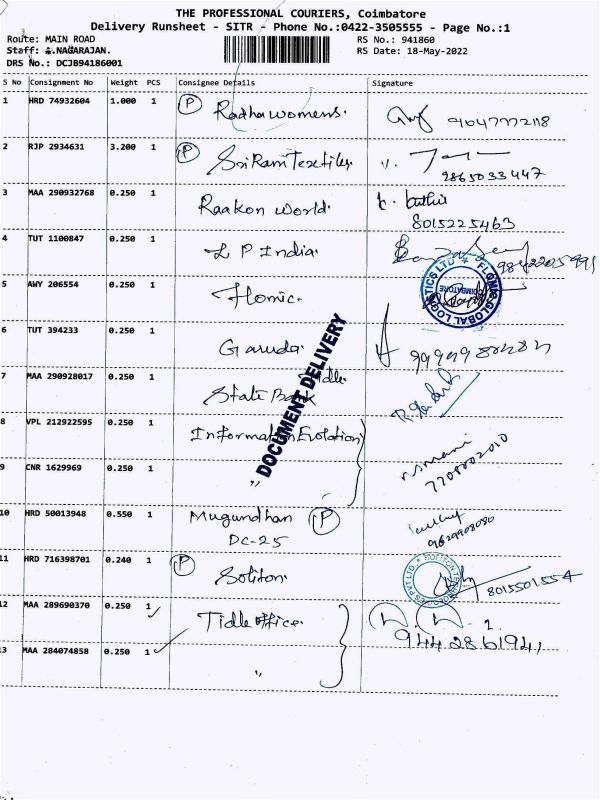 THE PROFESSIONAL COURIERS, Coimbatore
Delivery Runsheet - SITR - Phone No.:0422-3505555 - Page No.:1
Route: MAIN ROAD RS No.: 941860
Staff: NAGARAJAN. RS Date: 18-May-2022
DRS No.: DCJB94186001
S No Consignment No Weight PCS Consignee Details Signature
1 HRD 74932604 1.000 1 P Radha womens.
2 RJP 2934631 3.200 1 P Sri Ram Textiles
9865033447
3 MAA 290932768 0.250 1 Raakon world.
8015225463
4 TUT 1100847 0.250 1 L P India.
5 AWY 206554 0.250 1 Flomic.
FLOMIC GLOBAL LOGISTICS LTD
COIMBATORE
6 TUT 394233 0.250 1 Garuda.
7 MAA 290928017 0.250 1 State Bank Tidle.
DOCUMENT DELIVERY
8 VPL 212922595 0.250 1 Information Evolation
9 CNR 1629969 0.250 1 "
7708802010
10 HRD 50013948 0.550 1 Mugundhan P
DC-25
9629908080
11 HRD 716398701 0.240 1 P Soliton.
8015501554
12 MAA 289690370 0.250 1 Tidle office.
9442861941
13 MAA 284074858 0.250 1 "